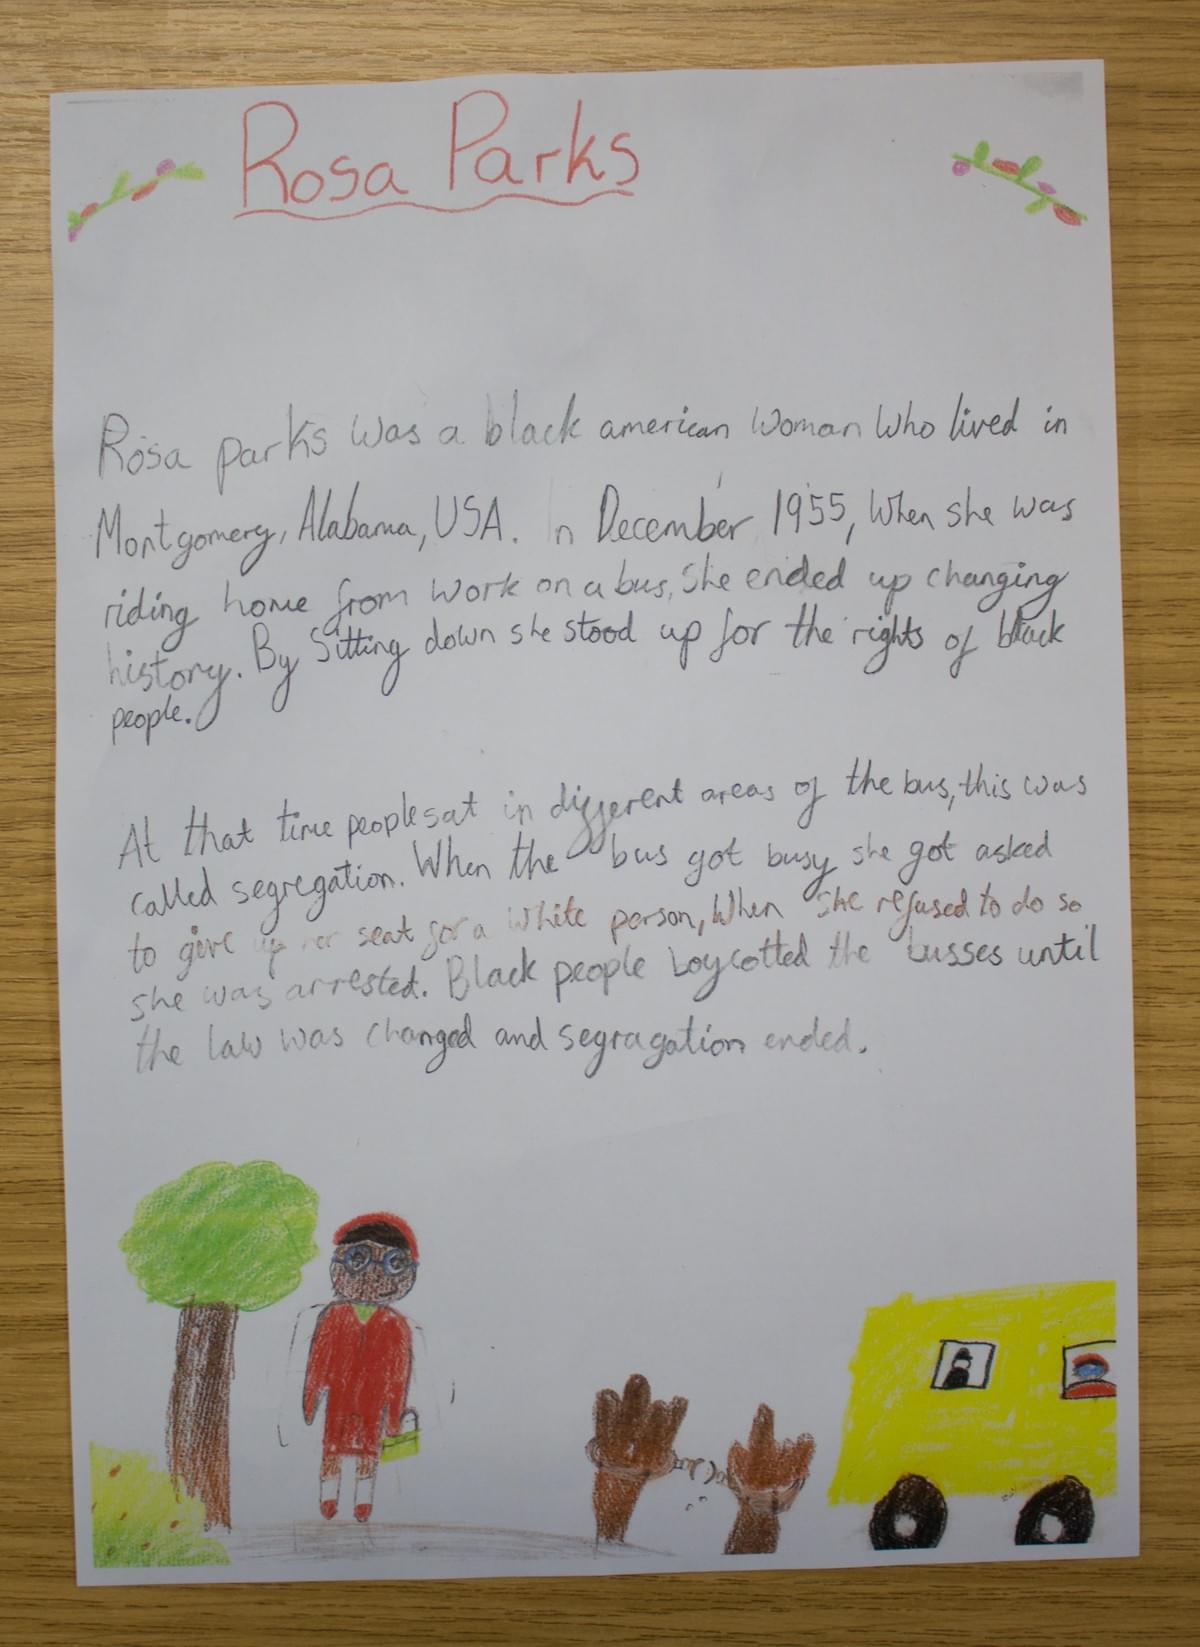 Rosa Parks
Rosa parks was a black american woman who lived in
Montgomery, Alabama, USA. In December 1955, when she was
riding home from work on a bus, she ended up changing
history. By Sitting down she stood up for the rights of black
people.
At that time people sat in different areas of the bus, this was
called segregation. When the bus got busy she got asked
to give up her seat for a white person, When she refused to do so
she was arrested. Black people boycotted the busses until
the law was changed and segragation ended.